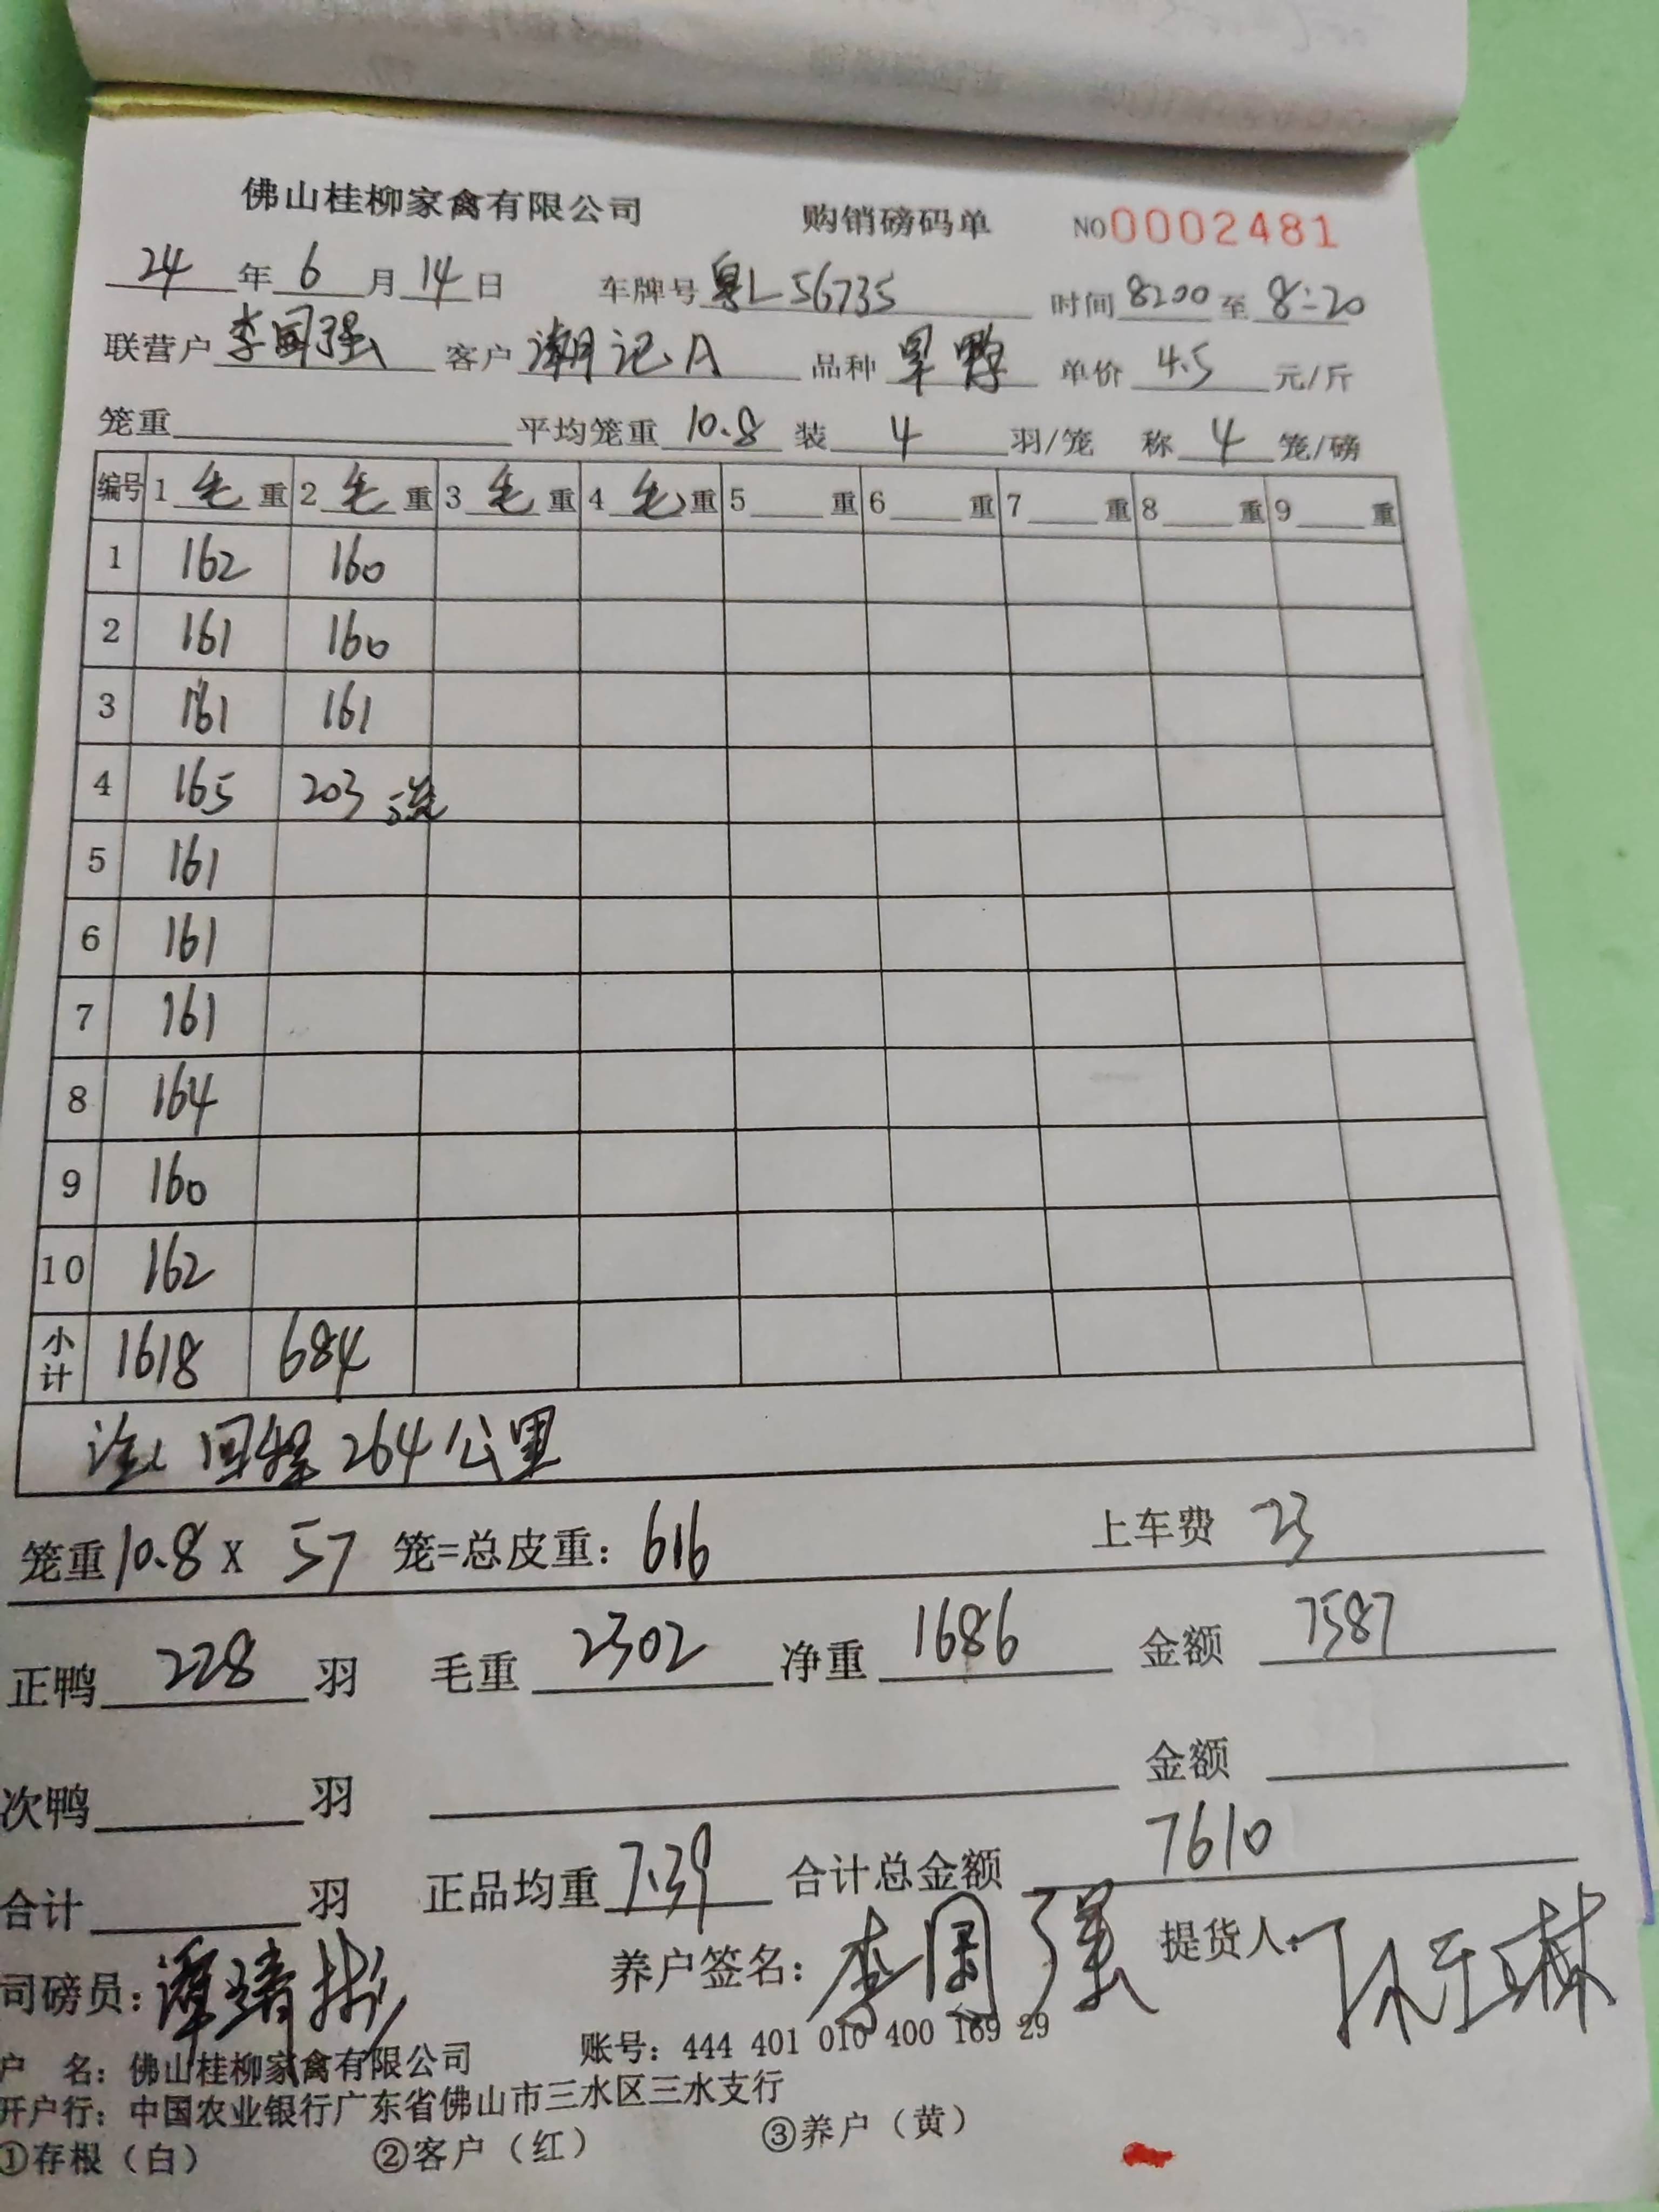 佛山桂柳家禽有限公司 购销磅码单 NO 0002481
24 年 6 月 14 日 车牌号 粤L56735 时间 8:00 至 8:20
联营户 李国强 客户 潮记A 品种 单价 4.5 元/斤
笼重 平均笼重 10.8 装 4 羽/笼 称 4 笼/磅
编号 1 毛 重 2 毛 重 3 毛 重 4 毛 重 5 重 6 重 7 重 8 重 9 重
1 162 160
2 161 160
3 161 161
4 165 203
5 161
6 161
7 161
8 164
9 160
10 162
小计 1618 684
注: 回程 264公里
笼重 10.8 X 57 笼=总皮重: 616 上车费 23
正鸭 228 羽 毛重 2302 净重 1686 金额 7587
次鸭 羽 金额
合计 羽 正品均重 7.39 合计总金额 7610
司磅员: 养户签名: 李国强 提货人:
户 名: 佛山桂柳家禽有限公司 账号: 444 401 010 400 169 29
开户行: 中国农业银行广东省佛山市三水区三水支行
①存根（白） ②客户（红） ③养户（黄）